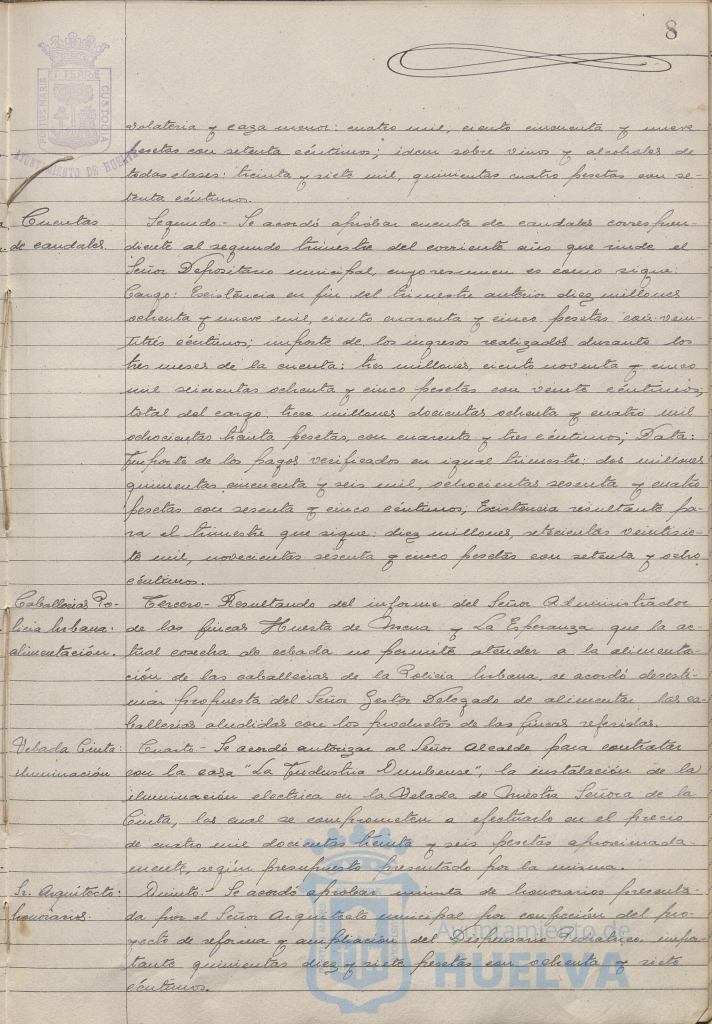 8
PORTUS MARIS ET TERRÆ CUSTODIA
AYUNTAMIENTO DE HUELVA
volateria y caza menor: cuatro mil, ciento cincuenta y nueve
pesetas con setenta céntimos; idem sobre vinos y alcoholes de
todas clases: treinta y siete mil, quinientas cuatro pesetas con se-
tenta céntimos.
Cuentas
de caudales.
Segundo.- Se acordó aprobar cuenta de caudales correspon-
diente al segundo trimestre del corriente año que rinde el
Señor Depositario municipal, cuyo resumen es como sigue:
Cargo: Existencia en fin del trimestre anterior diez millones
ochenta y nueve mil, ciento cuarenta y cinco pesetas con vein-
titrés céntimos; importe de los ingresos realizados durante los
tres meses de la cuenta: tres millones, ciento noventa y cinco
mil seiscientas ochenta y cinco pesetas con veinte céntimos;
total del cargo, trece millones docientas ochenta y cuatro mil
ochocientas treinta pesetas, con cuarenta y tres céntimos; Data:
Importe de los pagos verificados en igual trimestre: dos millones
quinientas cincuenta y seis mil, ochocientas sesenta y cuatro
pesetas con sesenta y cinco céntimos; Existencia resultante pa-
ra el trimestre que sigue: diez millones, setecientas veintisie-
te mil, novecientas sesenta y cinco pesetas con setenta y ocho
céntimos.
Caballerias Po-
licia Urbana:
alimentación.
Tercero.- Resultando del informe del Señor Administrador
de las fincas Huerta de Mena y La Esperanza que la ac-
tual cosecha de cebada no permite atender a la alimenta-
ción de las caballerias de la Policia Urbana, se acordó desesti-
mar propuesta del Señor Gestor Delegado de alimentar las ca-
ballerias aludidas con los productos de las fincas referidas.
Velada Cinta:
iluminación
Cuarto.- Se acordó autorizar al Señor Alcalde para contratar
con la casa "La Industria Onubense", la instalación de la
iluminación electrica en la Velada de Nuestra Señora de la
Cinta, los cual se comprometen a efectuarlo en el precio
de cuatro mil docientas treinta y seis pesetas aproximada-
mente, según presupuesto presentado por la misma.
Sr. Arquitecto:
honorarios.
Quinto.- Se acordó aprobar minuta de honorarios presenta-
da por el Señor Arquitecto municipal por confección del pro-
yecto de reforma y ampliación del Dispensario Pediatrico impor-
tante quinientas diez y siete pesetas con ochenta y siete
céntimos.
Ayuntamiento de
HUELVA